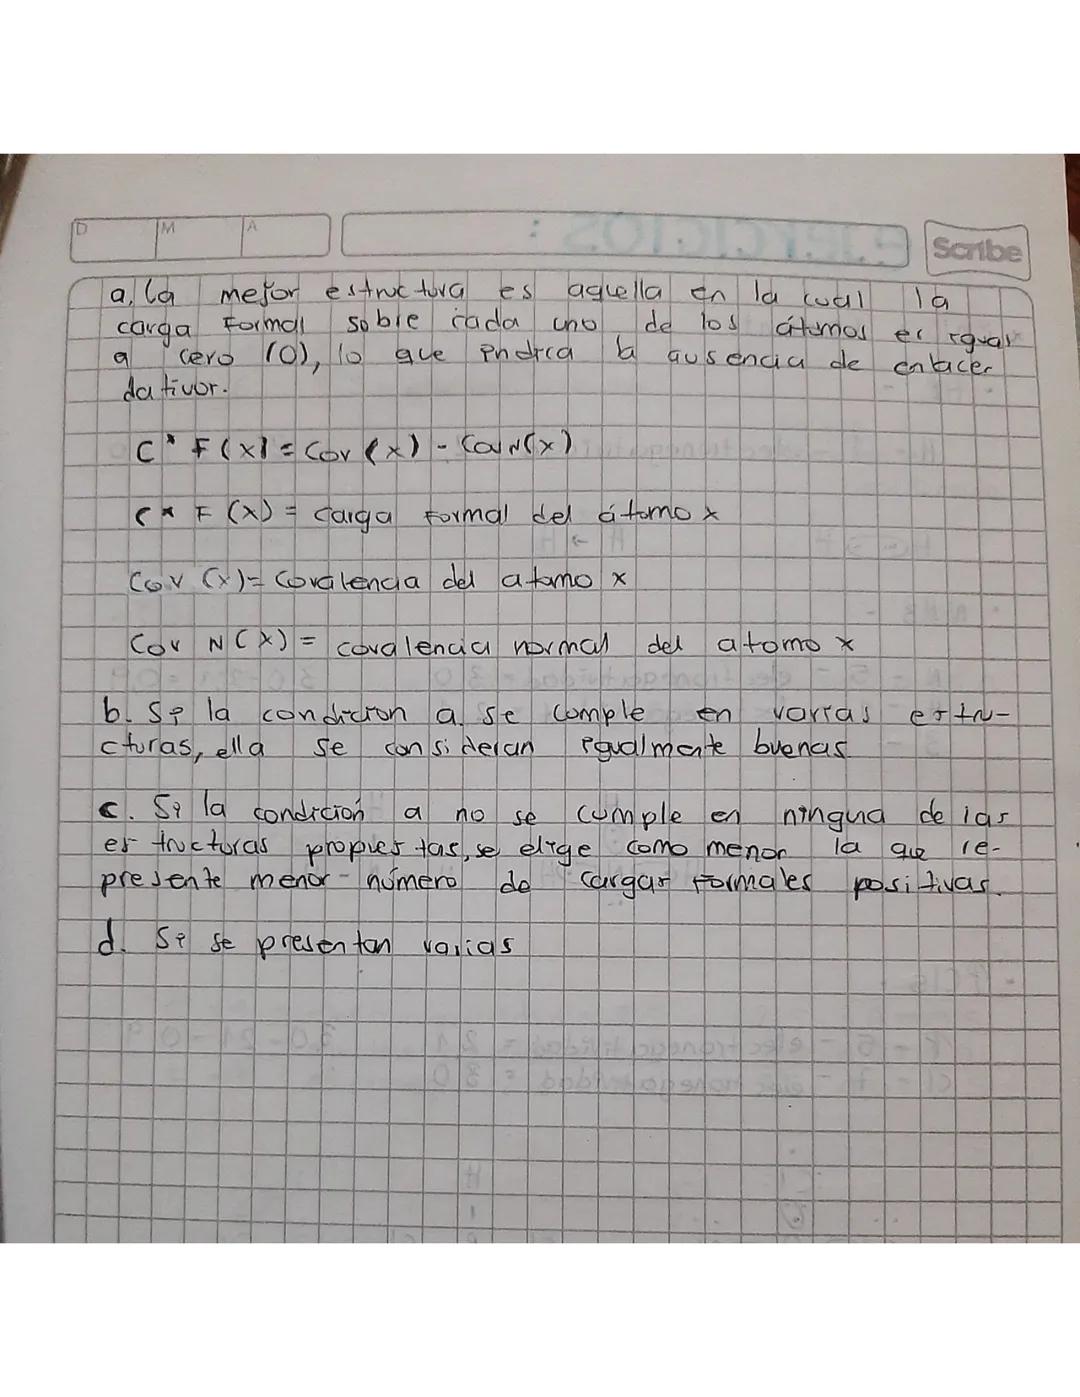 D M A
Scribe
a. la mejor estructura es aquella en la cual la
carga Formal sobre cada uno de los átomos es igual
a cero (0), lo que indica la ausencia de enlaces
dativos.
C* F(x) = Cov (x) - CovN(x)
C* F (x) = carga Formal del átomo x
Cov (x) = Covalencia del atomo x
Cov N(x) = covalencia normal del atomo x
b. Si la condicion a. se comple en varias estru-
cturas, ella se consideran igualmente buenas
c. Si la condición a no se cumple en ningua de las
estructuras propuestas, se elige como menor la que re-
presente menor número de cargas formales positivas.
d. Si se presentan varias